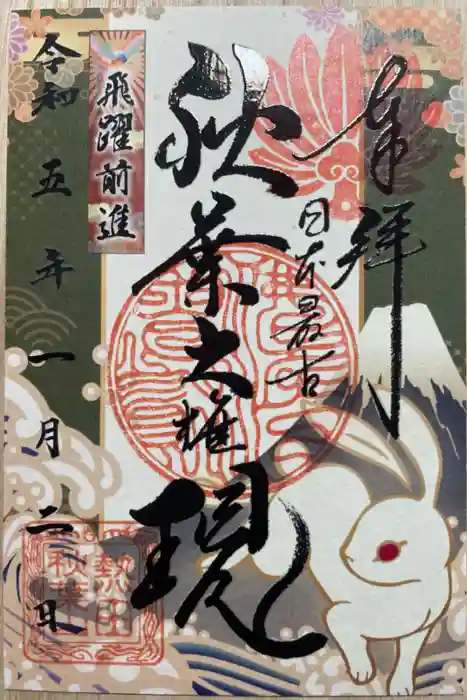 奉拝
日本最古
秋葉大権現
飛躍前進
令和五年一月二日
熱田
秋葉